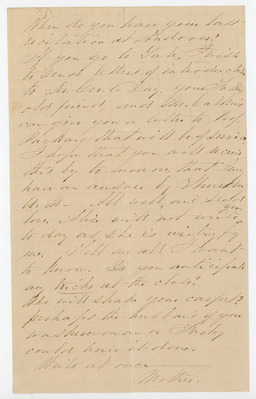 When do you have your last
recitation at Andover?
If you go to Yale, I wish
to send letters of introduction
to Mr. Day, your
old friend, and Mr.
can give you a letter to Prof.
Packard that will be of service
I hope that you will receive
this by to-morrow, that I may
have an answer by
All well, and send
love. Alice will not write
to day as she is
me. Tell me all I want
to know. Do you anticipate
any tricks at the close?
Who will shake your carpet?
perhaps the husband of your
washerwoman or
could have it done.
Write at once
Mother.